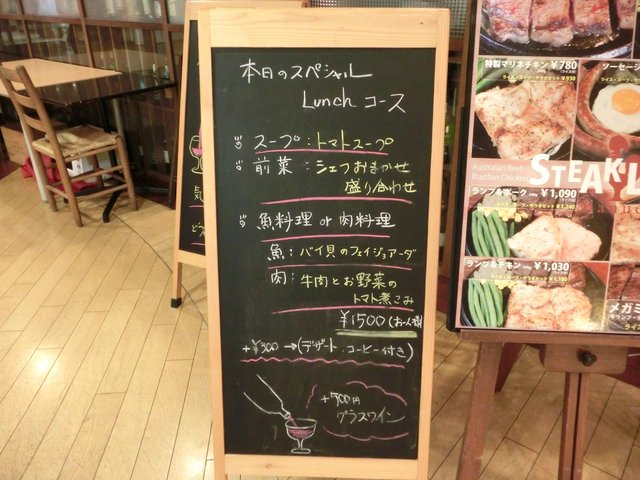 本日のスペシャル
Lunch コース
スープ：トマトスープ
前菜：シェフおまかせ
盛り合わせ
魚料理 or 肉料理
魚：バイ貝のフェイジョアーダ
肉：牛肉とお野菜の
トマト煮こみ
¥1500(お一人様)
+¥300→(デザート.コーヒー付き)
+500円
グラスワイン
特製マリネチキン ¥780
ライス・スープ・サラダセット ¥930
ソーセージ
Australian Beef
Brazilian Chicken
STEAK
ランプ&ポーク ¥1,090
ライス・スープ・サラダセット ¥1,240
ランプ&チキン ¥1,030
ライス・スープ・サラダセット ¥1,180
メガミ
気